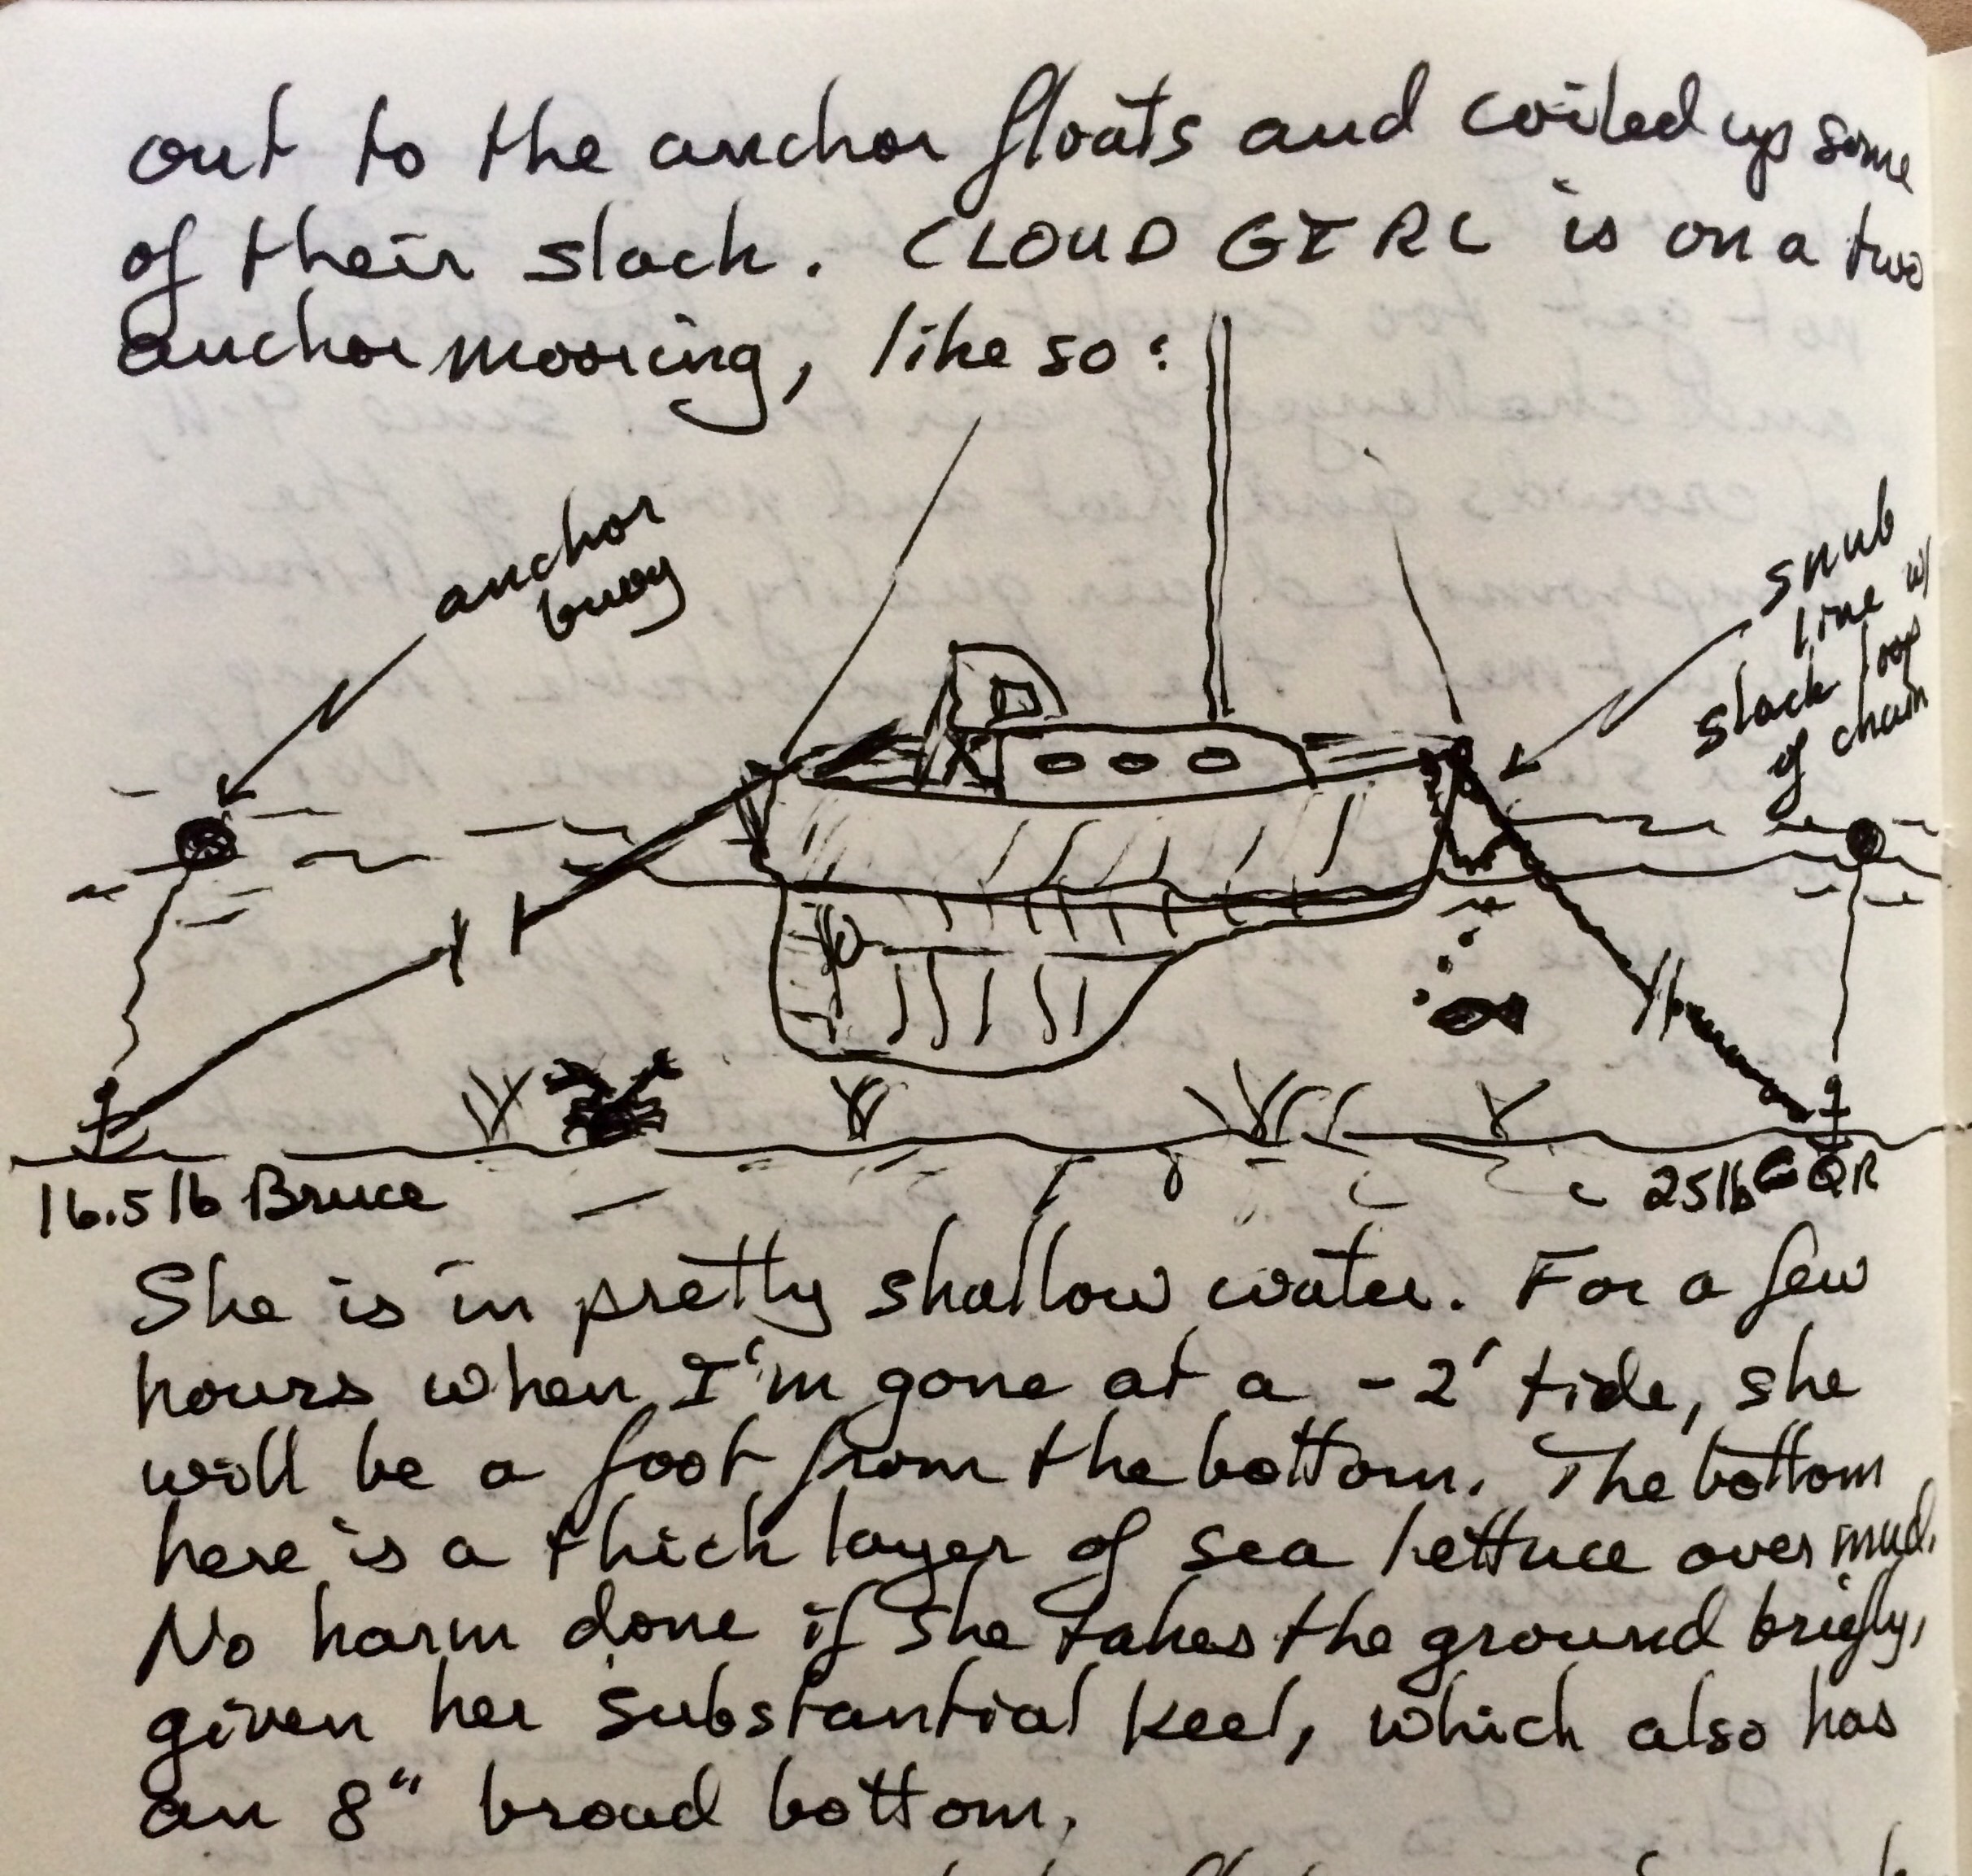 out to the anchor floats and coiled up some
of their slack. CLOUD GIRL is on a two
anchor mooring, like so:
anchor
buoy
snub
line w/
slack loop
of chain
16.5 lb Bruce
25 lb CQR
She is in pretty shallow water. For a few
hours when I'm gone at a -2' tide, she
will be a foot from the bottom. The bottom
here is a thick layer of sea lettuce over mud.
No harm done if she takes the ground briefly,
given her substantial keel, which also has
an 8" broad bottom.